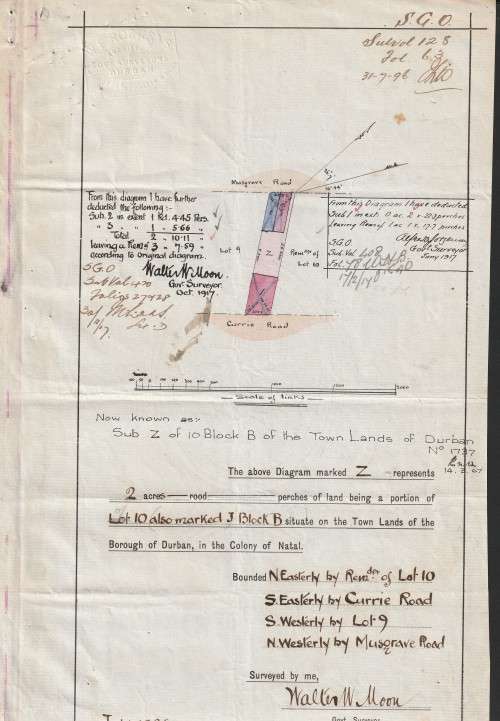 S.G.O
SubVol 128
Fol 63
31-7-96
Musgrave Road
From this diagram I have further
deducted the following:-
Sub. 2 in extent 1 Rd. 4.45 Pers.
" 3 " 1 " 5.66 "
Total 2 " 10.11 "
leaving a Remdr of 3 " 7.59 "
according to Original diagram.
Walter W. Moon.
Gov. Surveyor
Oct. 1917.
SGO
Sub Vol 470
Lot 9
Z
Remdr of
Lot 10
From this Diagram I have deducted
S.G.O
Sub. Vol.
Fol.
Govt Surveyor
Currie Road
Scale of links
Now known as:-
Sub Z of 10 Block B of the Town Lands of Durban
No 1737
14.2.07
The above Diagram marked Z represents
2 acres rood perches of land being a portion of
Lot 10 also marked J Block B situate on the Town Lands of the
Borough of Durban, in the Colony of Natal.
Bounded N Easterly by Remder of Lot 10
S. Easterly by Currie Road
S. Westerly by Lot 9
N. Westerly by Musgrave Road
Surveyed by me,
Walter W. Moon
Govt. Surveyor